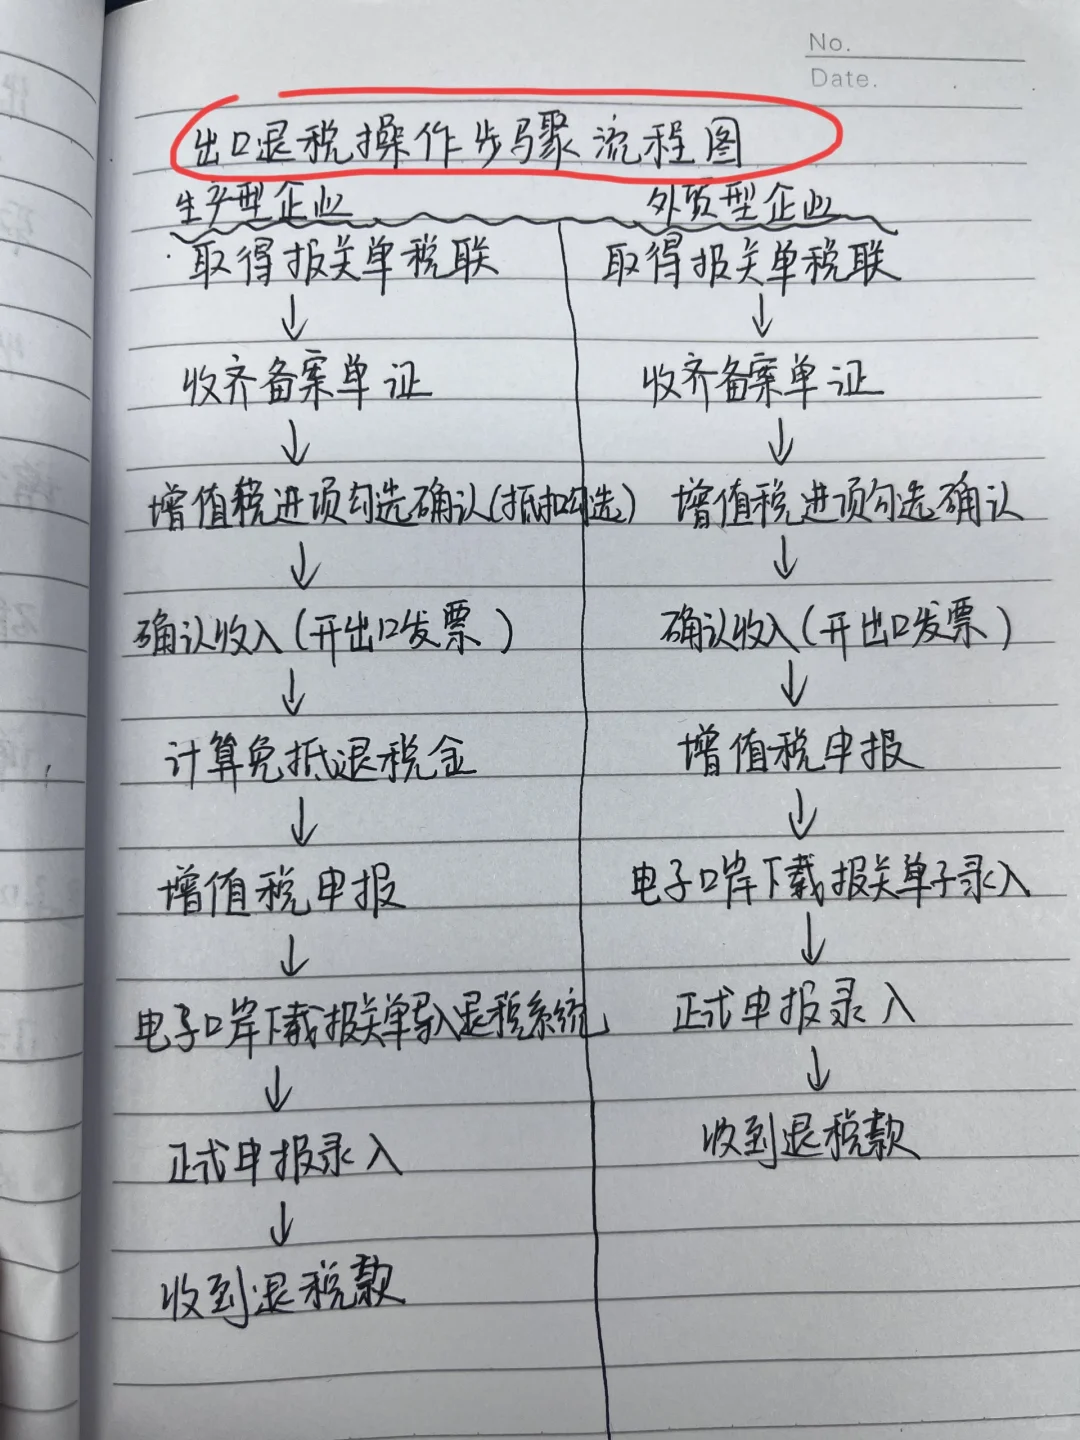 No.
Date.
出口退税操作步骤流程图
生产型企业
取得报关单税联
↓
收齐备案单证
↓
增值税进项勾选确认(抵扣勾选)
↓
确认收入(开出口发票)
↓
计算免抵退税金
↓
增值税申报
↓
电子口岸下载报关单导入退税系统
↓
正式申报录入
↓
收到退税款
外贸型企业
取得报关单税联
↓
收齐备案单证
↓
增值税进项勾选确认
↓
确认收入(开出口发票)
↓
增值税申报
↓
电子口岸下载报关单子录入
↓
正式申报录入
↓
收到退税款